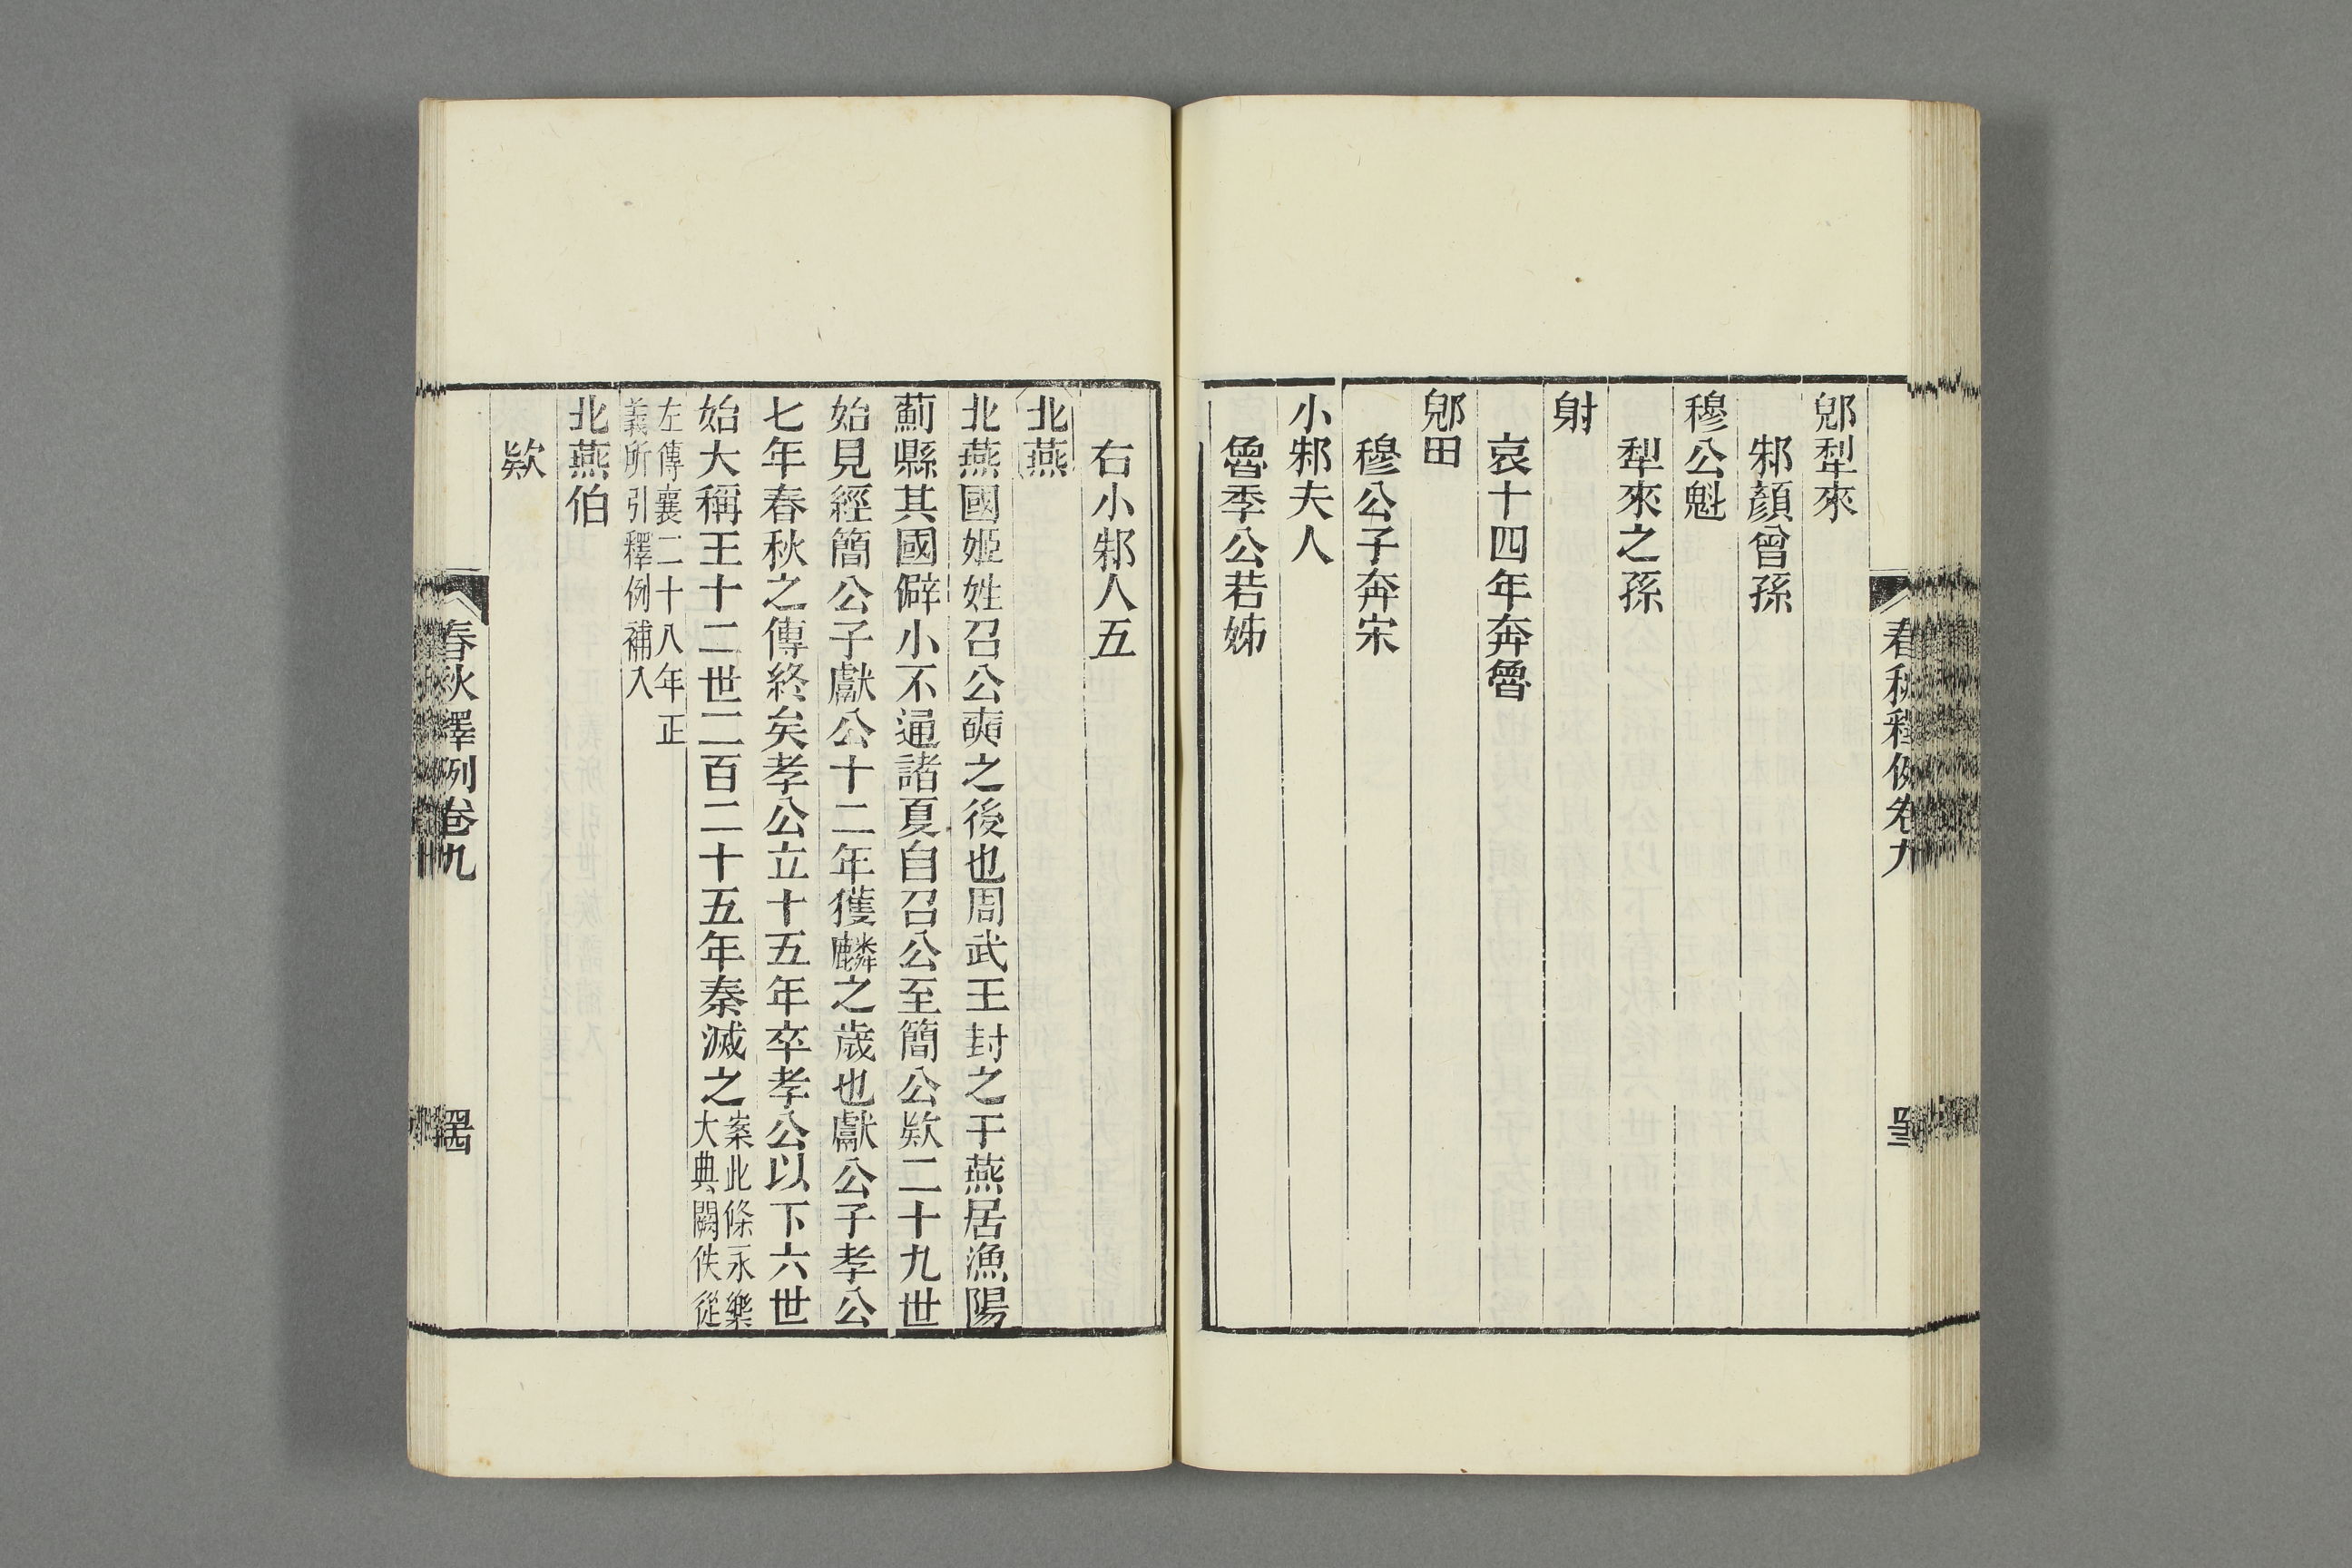 郳犁來
邾顏曾孫
穆公魁
犁來之孫
射
哀十四年奔魯
郳田
穆公子奔宋
小邾夫人
魯季公若姊
右小邾人五
北燕
北燕國姬姓召公奭之後也周武王封之于燕居漁陽
薊縣其國僻小不通諸夏自召公至簡公欵二十九世
始見經簡公子獻公十二年獲麟之歲也獻公子孝公
七年春秋之傳終矣孝公立十五年卒孝公以下六世
始大稱王十二世二百二十五年秦滅之案此條永樂
大典闕佚從
左傳襄二十八年正
義所引釋例補入
北燕伯
欵
春秋釋例卷九